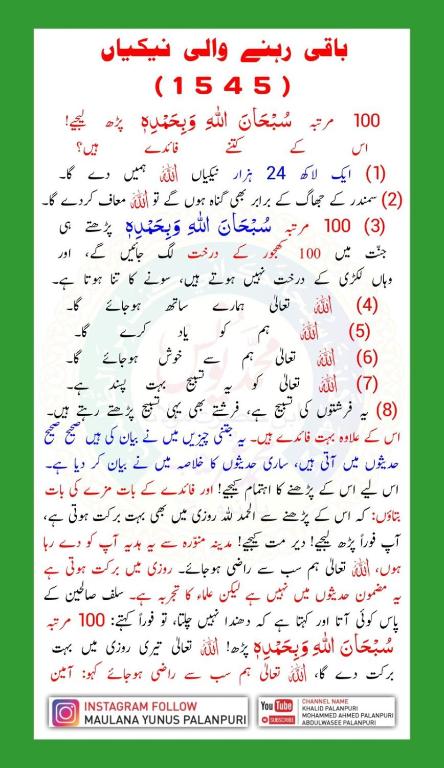 باقی رہنے والی نیکیاں
(1545)
100 مرتبہ سُبْحَانَ اللّٰهِ وَبِحَمْدِهٖ پڑھ لیجیے!
اس کے کتنے فائدے ہیں؟
(1) ایک لاکھ 24 ہزار نیکیاں اللہ ہمیں دے گا۔
(2) سمندر کے جھاگ کے برابر بھی گناہ ہوں گے تو اللہ معاف کردے گا۔
(3) 100 مرتبہ سُبْحَانَ اللّٰهِ وَبِحَمْدِهٖ پڑھتے ہی
جنّت میں 100 کھجور کے درخت لگ جائیں گے، اور
وہاں لکڑی کے درخت نہیں ہوتے ہیں، سونے کا تنا ہوتا ہے۔
(4) اللہ تعالیٰ ہمارے ساتھ ہوجائے گا۔
(5) اللہ ہم کو یاد کرے گا۔
(6) اللہ تعالیٰ ہم سے خوش ہوجائے گا۔
(7) اللہ تعالیٰ کو یہ تسبیح بہت پسند ہے۔
(8) یہ فرشتوں کی تسبیح ہے، فرشتے بھی یہی تسبیح پڑھتے رہتے ہیں۔
اس کے علاوہ بہت فائدے ہیں۔ یہ جتنی چیزیں میں نے بیان کی ہیں صحیح صحیح
حدیثوں میں آتی ہیں، ساری حدیثوں کا خلاصہ میں نے بیان کر دیا ہے۔
اس لیے اس کے پڑھنے کا اہتمام کیجیے! اور فائدے کے بات مزے کی بات
بتاؤں: کہ اس کے پڑھنے سے الحمد للہ روزی میں بھی بہت برکت ہوتی ہے،
آپ فوراً پڑھ لیجیے! دیر مت کیجیے! مدینہ منوّرہ سے یہ ہدیہ آپ کو دے رہا
ہوں، اللہ تعالیٰ ہم سب سے راضی ہوجائے۔ روزی میں برکت ہوتی ہے
یہ مضمون حدیثوں میں نہیں ہے لیکن علماء کا تجربہ ہے۔ سلف صالحین کے
پاس کوئی آتا اور کہتا ہے کہ دھندا نہیں چلتا، تو فوراً کہتے: 100 مرتبہ
سُبْحَانَ اللّٰهِ وَبِحَمْدِهٖ پڑھ! اللہ تعالیٰ تیری روزی میں بہت
برکت دے گا، اللہ تعالیٰ ہم سب سے راضی ہوجائے کہو: آمین
INSTAGRAM FOLLOW
MAULANA YUNUS PALANPURI
YouTube
SUBSCRIBE
CHANNEL NAME
KHALID PALANPURI
MOHAMMED AHMED PALANPURI
ABDULWASEE PALANPURI